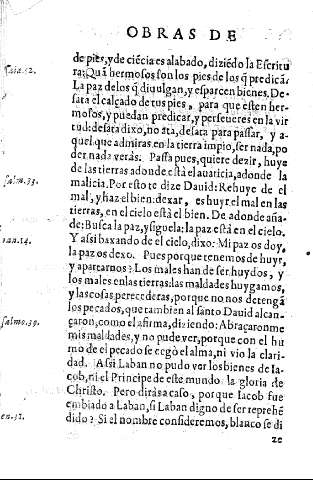 OBRAS DE
de pies, y de ciẽcia es alabado, diziẽdo la Escritu
ra: Quã hermosos son los pies de los q̃ predicã
La paz de los q̃ diuulgan, y esparcen bienes. De-
sata el calçado de tus pies, para que estẽn her-
mosos, y puedan predicar, y perseueres en la vir
tud: desata dixo, no ata, desata para passar, y a-
quel que admiras en la tierra impio, ser nada, po
der nada veràs. Passa pues, quiere dezir, huye
de las tierras adonde està el auaricia, adonde la
malicia. Por esto te dize Dauid: Rehuye de el
mal, y haz el bien: dexar, es huyr el mal en las
tierras, en el cielo està el bien. De adonde aña-
de: Busca la paz, y siguela: la paz està en el cielo.
Y assi baxando de el cielo, dixo: Mi paz os doy,
la paz os dexo. Pues porque tenemos de huyr,
y apartarnos? Los males han de ser huydos, y
los males en las tierras: las maldades huygamos,
y las cosas perecederas, porque no nos detengã
los pecados, que tambien al santo Dauid alcan-
çaron, como el afirma, diziendo: Abraçaronme
mis maldades, y no pude ver, porque con el hu
mo de el pecado se cegò el alma, ni vio la clari-
dad. Assi Laban no pudo ver los bienes de Ia-
cob, ni el Principe de este mundo la gloria de
Christo. Pero diràs a caso, porque Iacob fue
embiado a Laban, si Laban digno de ser reprehẽ
dido? Si el nombre consideremos, blanco se di
ze
Psalm.33.
Psalmo.39.